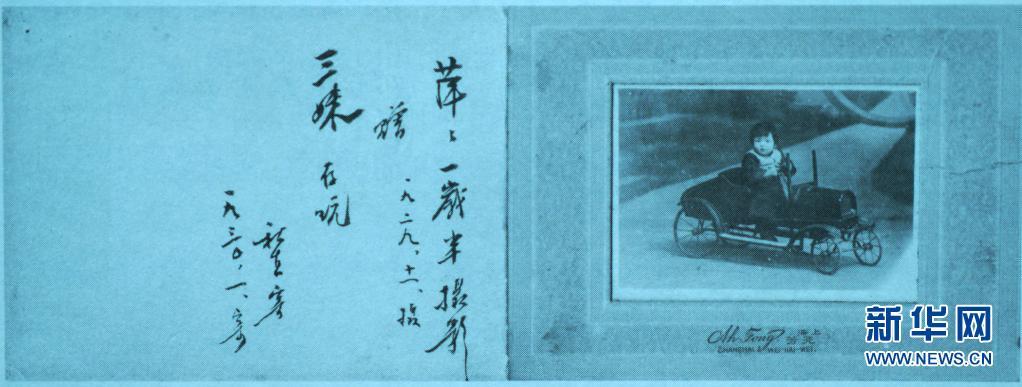 萍々一歲半攝影
一九二九、十一、攝
贈
三妹 存玩
寄
一九三〇、一、寄
Ah Fong
SHANGHAI & WEI-HAI-WEI.
新华网
WWW.NEWS.CN